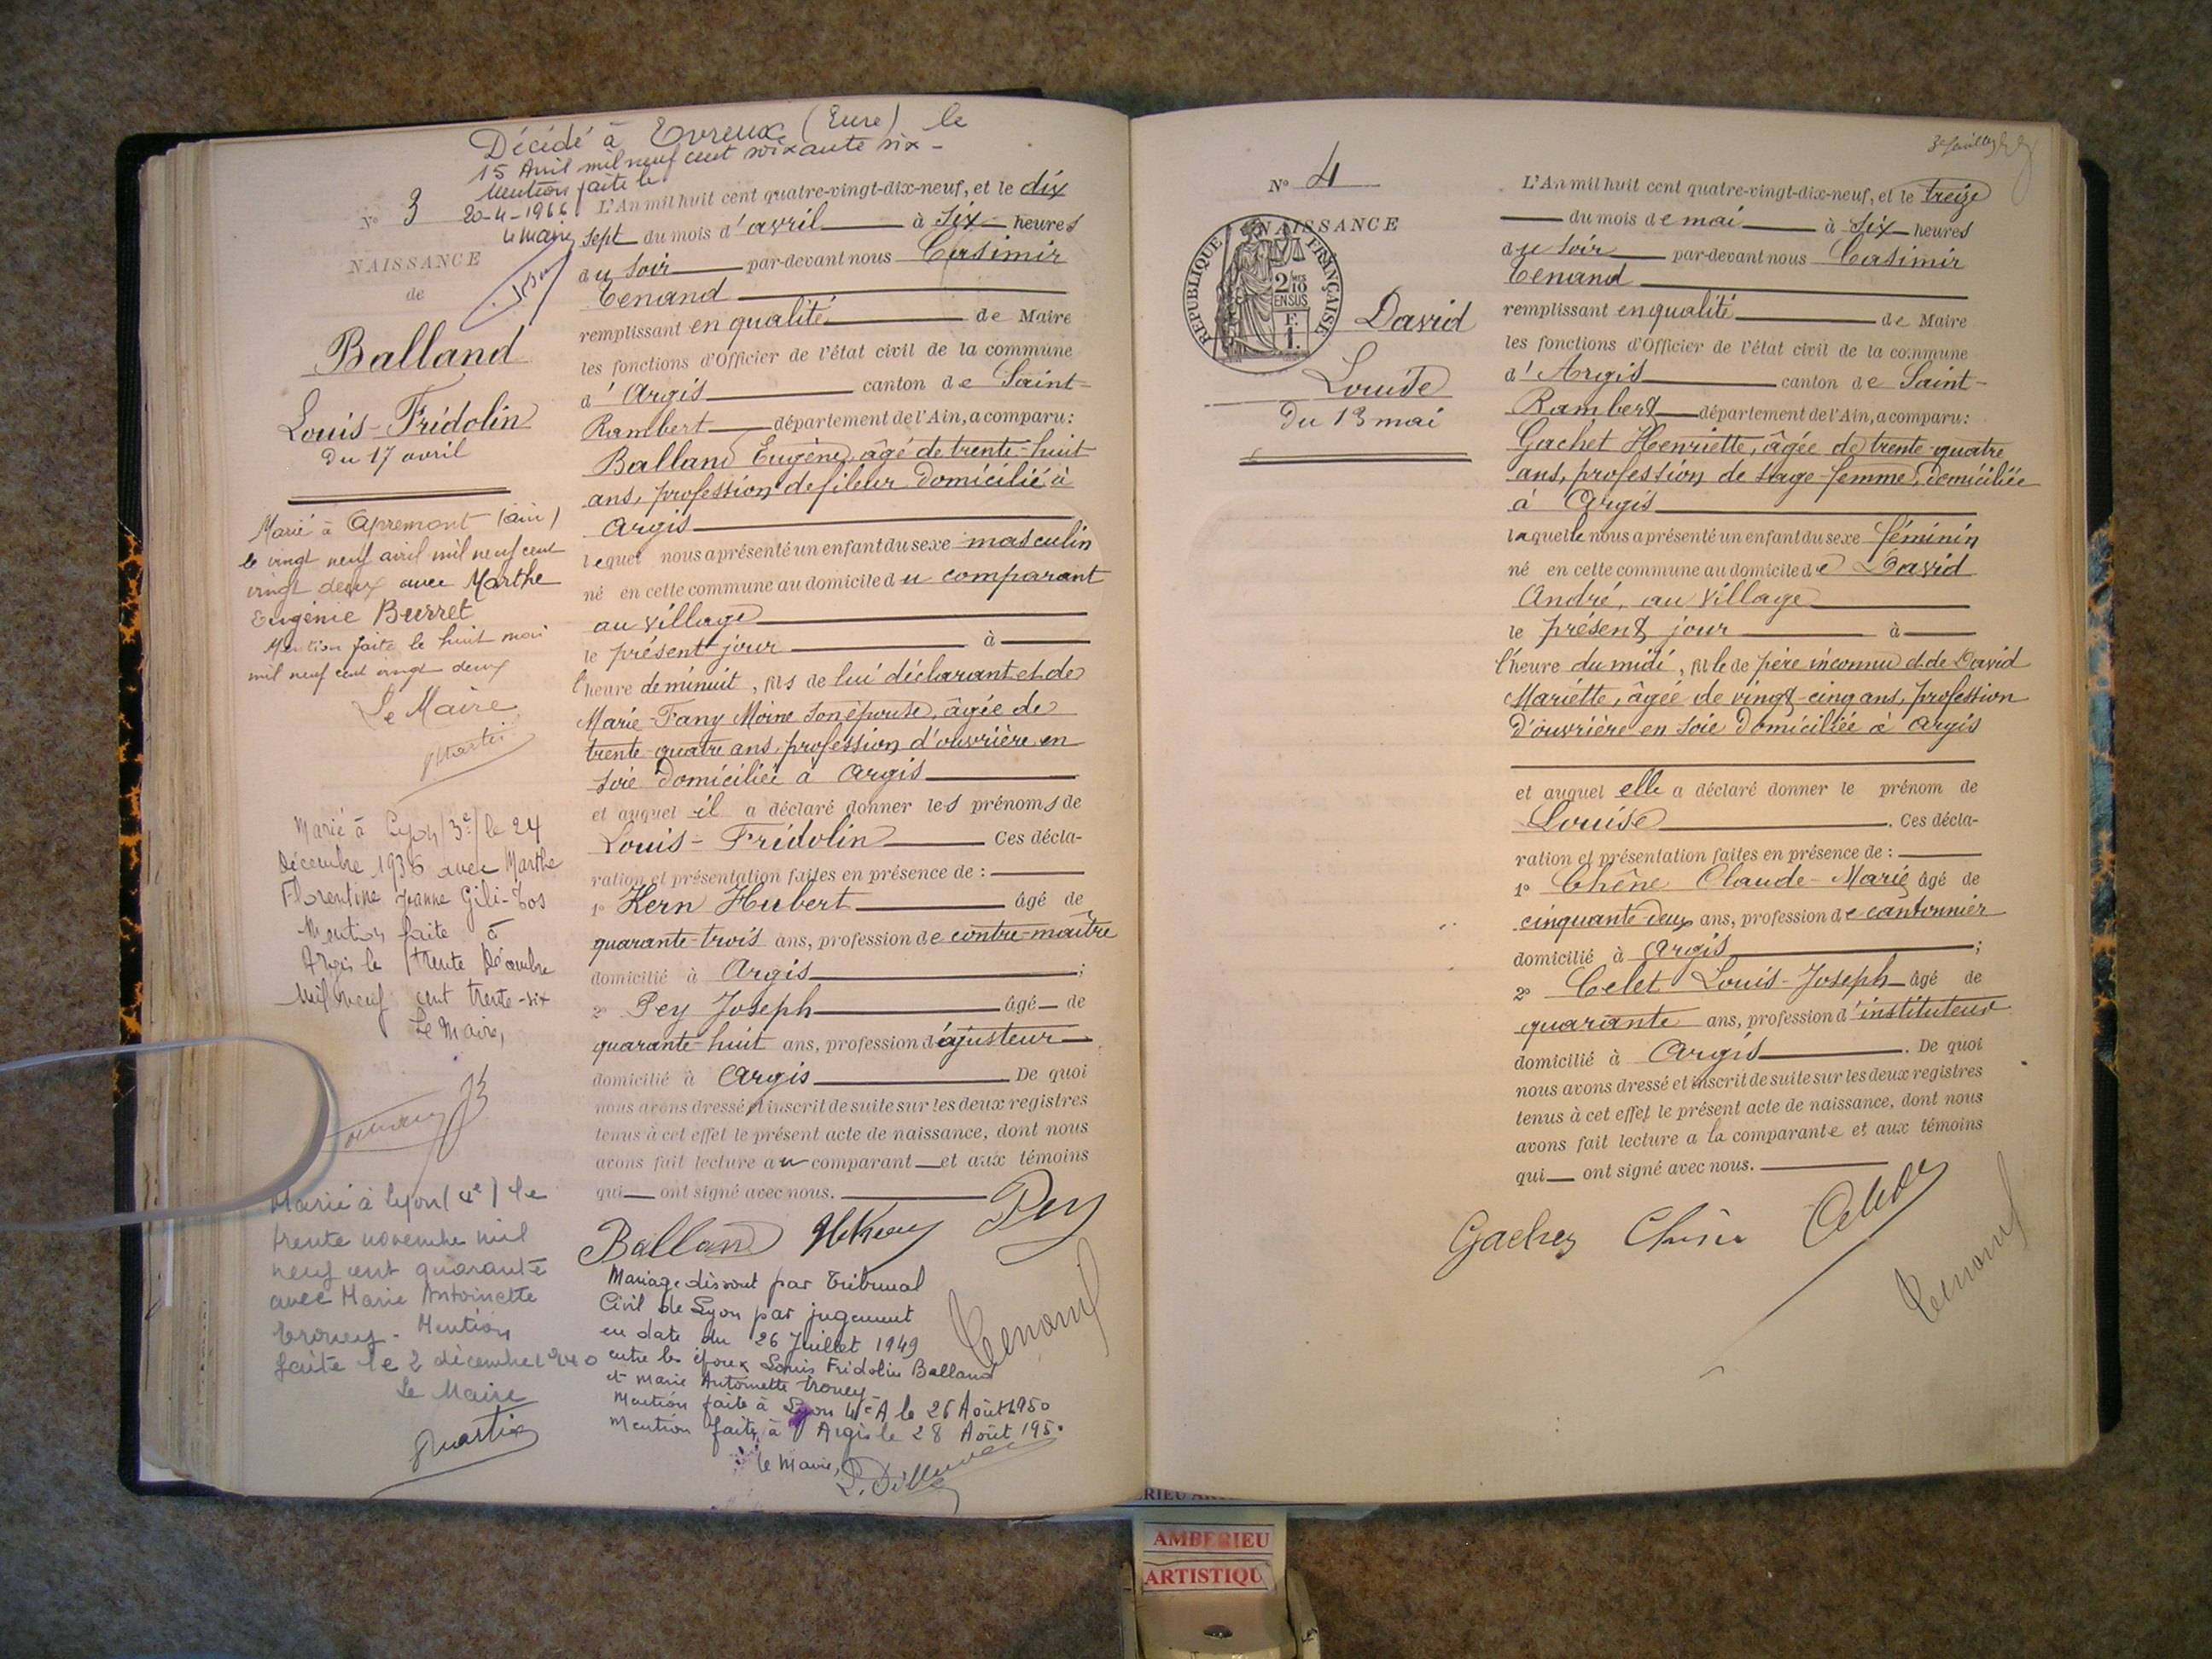 Décédé à Evreux (Eure) le
15 Avril mil neuf cent soixante six -
Mention faite le
20-4-1966
Le Maire
N° 3
NAISSANCE
de
Balland
Louis-Fridolin
Du 17 avril
Marié à Apremont (Ain)
le vingt neuf avril mil neuf cent
vingt deux avec Marthe
Eugénie Burret
Mention faite le huit mai
mil neuf cent vingt deux
Le Maire
Marié à Lyon (3e) le 24
Décembre 1936 avec Marthe
Florentine Jeanne Gili-Tos
Mention faite à
Argis le trente Décembre
mil neuf cent trente-six
Le Maire,
Marié à Lyon (4e) le
trente novembre mil
neuf cent quarante
avec Marie Antoinette
Troney - Mention
faite le 2 décembre 1940
Le Maire
L'An mil huit cent quatre-vingt-dix-neuf, et le dix
sept du mois d'avril à six heures
du soir par-devant nous Casimir
Tenand
remplissant en qualité de Maire
les fonctions d'Officier de l'état civil de la commune
d'Argis canton de Saint-
Rambert département de l'Ain, a comparu :
Balland Eugène, âgé de trente-huit
ans, profession de fileur domicilié à
Argis
lequel nous a présenté un enfant du sexe masculin
né en cette commune au domicile du comparant
au village
le présent jour à
l'heure de minuit, fils de lui déclarant et de
Marie-Fany Moine son épouse, âgée de
trente-quatre ans, profession d'ouvrière en
soie domiciliée à Argis
et auquel il a déclaré donner les prénoms de
Louis-Fridolin Ces décla-
ration et présentation faites en présence de :
1° Kern Hubert âgé de
quarante-trois ans, profession de contre-maître
domicilié à Argis ;
2° Pey Joseph âgé de
quarante-huit ans, profession d'ajusteur
domicilié à Argis De quoi
nous avons dressé et inscrit de suite sur les deux registres
tenus à cet effet le présent acte de naissance, dont nous
avons fait lecture au comparant et aux témoins
qui ont signé avec nous.
Balland HKern Pey
Tenand
Mariage dissout par Tribunal
Civil de Lyon par jugement
en date du 26 Juillet 1949
entre les époux Louis Fridolin Balland
et Marie Antoinette Troney
Mention faite à Lyon 4e A le 26 Août 1950
Mention faite à Argis le 28 Août 1950
Le Maire,
N° 4
NAISSANCE
REPUBLIQUE FRANÇAISE
2/10 EN SUS
F. 1.
David
Louise
Du 13 mai
L'An mil huit cent quatre-vingt-dix-neuf, et le treize
du mois de mai à six heures
du soir par-devant nous Casimir
Tenand
remplissant en qualité de Maire
les fonctions d'Officier de l'état civil de la commune
d'Argis canton de Saint-
Rambert département de l'Ain, a comparu :
Gachet Henriette, âgée de trente-quatre
ans, profession de sage-femme, domiciliée
à Argis
laquelle nous a présenté un enfant du sexe féminin
né en cette commune au domicile de David
André, au village
le présent jour à
l'heure du midi, fille de père inconnu et de David
Mariette, âgée de vingt-cinq ans, profession
d'ouvrière en soie domiciliée à Argis
et auquel elle a déclaré donner le prénom de
Louise . Ces décla-
ration et présentation faites en présence de :
1° Chêne Claude-Marie âgé de
cinquante-deux ans, profession de cantonnier
domicilié à Argis ;
2° Celet Louis-Joseph âgé de
quarante ans, profession d'instituteur
domicilié à Argis . De quoi
nous avons dressé et inscrit de suite sur les deux registres
tenus à cet effet le présent acte de naissance, dont nous
avons fait lecture a la comparante et aux témoins
qui ont signé avec nous.
Gachet Chêne Celet
Tenand
AMBERIEU
ARTISTIQU